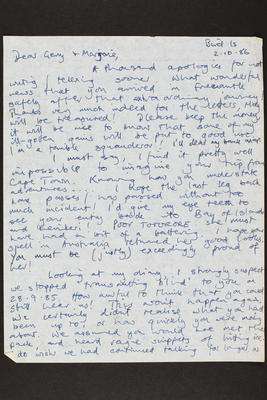 Bwd Is
2-10-86
Dear Gerry & Marjorie,
A thousand apologies for not
writing / telexing sooner. What wonderful
news that you arrived in Fremantle
safely after that extraordinary journey.
Thanks very much indeed for the letters, they
will be treasured! Please keep the money,
it will be nice to know that some of my
ill-gotten gains will be put to good use!
I'm a terrible squanderer!
I must say, I find it pretty well
impossible to imagine your trip from
Cape Town. Knowing how you understate
adventures... I hope the last leg back
has passed without too
much incident! I'd give my eye teeth to
see your entry back to Bay of Islands
and Kerikeri! Poor TOTORORE she must
have had a bit of a battering. I hope your
spell in Australia returned her good looks.
You must be (justly) exceedingly proud of
her!
Looking at my diary I strongly suspect
we stopped 'transmitting blind' to you on
28-9-85. How awful to think that you could
still hear us! They won't happen again,
We certainly didn't realise what you had
been up to, or how quickly you were not
above. We assumed you would have met the
pack, and heard vague snippets of
do wish we had continued talking for longer as